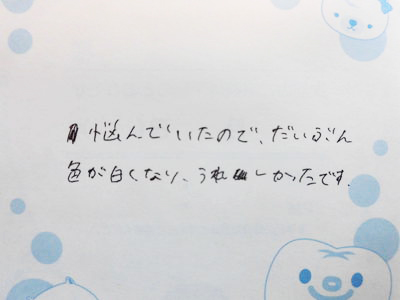 悩んでいたので、だいぶん
色が白くなり、うれしかったです。